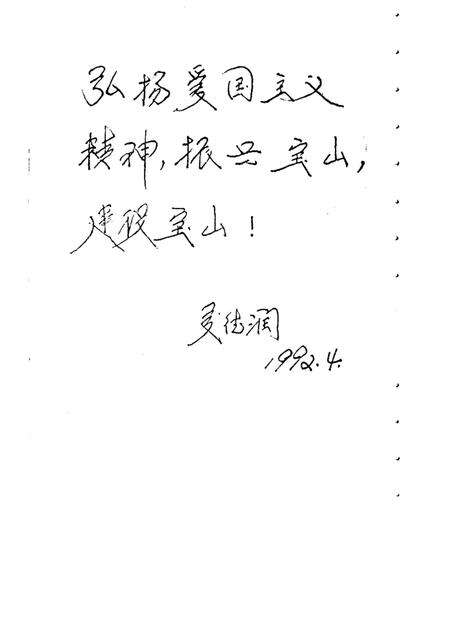 弘扬爱国主义
精神,振兴宝山,
建设宝山!
夏德润
1992.4.